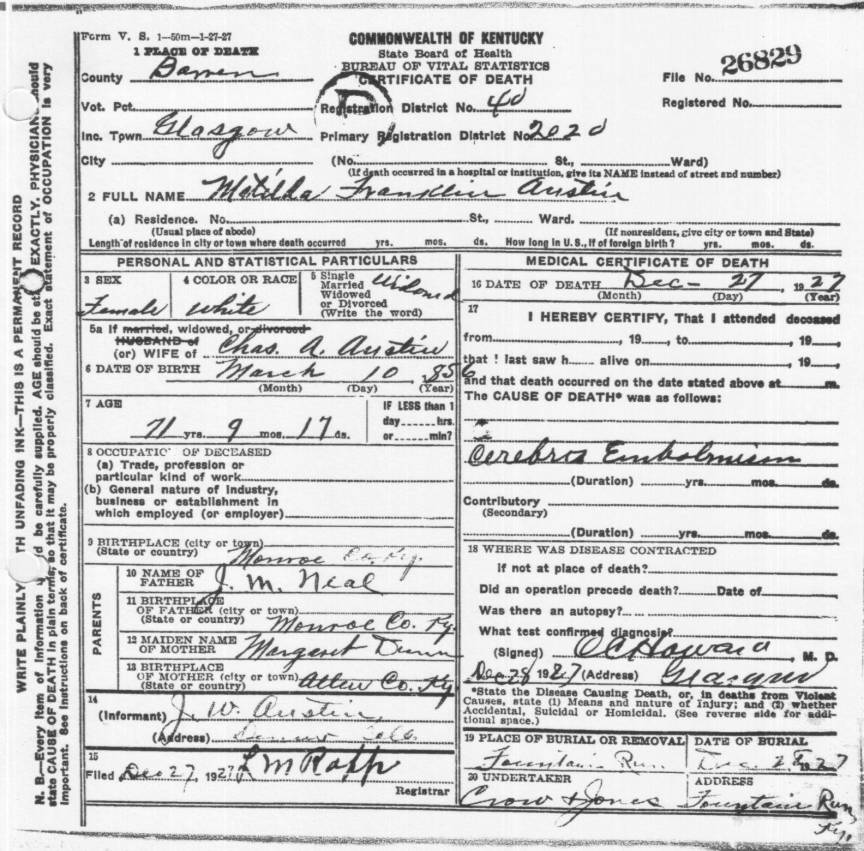 Form V. S. 1—50m—1-27-27
COMMONWEALTH OF KENTUCKY
State Board of Health
BUREAU OF VITAL STATISTICS
CERTIFICATE OF DEATH
1 PLACE OF DEATH
County Barren
File No. 26829
Vot. Pct.
Registration District No. 40
Registered No.
Inc. Town Glasgow
Primary Registration District No 2020
City (No. St., Ward)
(If death occurred in a hospital or institution, give its NAME instead of street and number)
2 FULL NAME Matilda Franklin Austin
(a) Residence. No. St., Ward.
(Usual place of abode) (If nonresident, give city or town and State)
Length of residence in city or town where death occurred yrs. mos. ds. How long in U.S., if of foreign birth? yrs. mos. ds.
PERSONAL AND STATISTICAL PARTICULARS
3 SEX Female
4 COLOR OR RACE White
5 Single
Married
Widowed
or Divorced
(Write the word)
Widowed
5a If married, widowed, or divorced
HUSBAND of
(or) WIFE of Chas. A. Austin
6 DATE OF BIRTH March 10, 1856
(Month) (Day) (Year)
7 AGE
71 yrs. 9 mos. 17 ds.
IF LESS than 1
day hrs.
or min?
8 OCCUPATION OF DECEASED
(a) Trade, profession or
particular kind of work
(b) General nature of industry,
business or establishment in
which employed (or employer)
9 BIRTHPLACE (city or town)
(State or country) Monroe Co. Ky.
PARENTS
10 NAME OF
FATHER J. M. Neal
11 BIRTHPLACE
OF FATHER (city or town)
(State or country) Monroe Co. Ky.
12 MAIDEN NAME
OF MOTHER Margaret Dunn
13 BIRTHPLACE
OF MOTHER (city or town)
(State or country) Allen Co. Ky.
14
(Informant) J. W. Austin
(Address)
15
Filed Dec 27, 1927 L M Rapp
Registrar
MEDICAL CERTIFICATE OF DEATH
16 DATE OF DEATH Dec- 27 1927
(Month) (Day) (Year)
17
I HEREBY CERTIFY, That I attended deceased
from , 19 , to , 19 ,
that I last saw h alive on , 19 ,
and that death occurred on the date stated above at m.
The CAUSE OF DEATH* was as follows:
Cerebros Embolmison
(Duration) yrs. mos. ds.
Contributory
(Secondary)
(Duration) yrs. mos. ds.
18 WHERE WAS DISEASE CONTRACTED
If not at place of death?
Did an operation precede death? Date of
Was there an autopsy?
What test confirmed diagnosis?
(Signed) C C Howard, M. D.
Dec 28 1927 (Address) Glasgow
*State the Disease Causing Death, or, in deaths from Violent
Causes, state (1) Means and nature of Injury; and (2) whether
Accidental, Suicidal or Homicidal. (See reverse side for addi-
tional space.)
19 PLACE OF BURIAL OR REMOVAL
Fountain Run
DATE OF BURIAL
Dec. 28 1927
20 UNDERTAKER
Crow & Jones
ADDRESS
Fountain Run
Ky.
WRITE PLAINLY TH UNFADING INK—THIS IS A PERMANENT RECORD
N. B.—Every item of information d be carefully supplied. AGE should be st EXACTLY. PHYSICIANS should
state CAUSE OF DEATH in plain terms, so that it may be properly classified. Exact statement of OCCUPATION is very
important. See instructions on back of certificate.